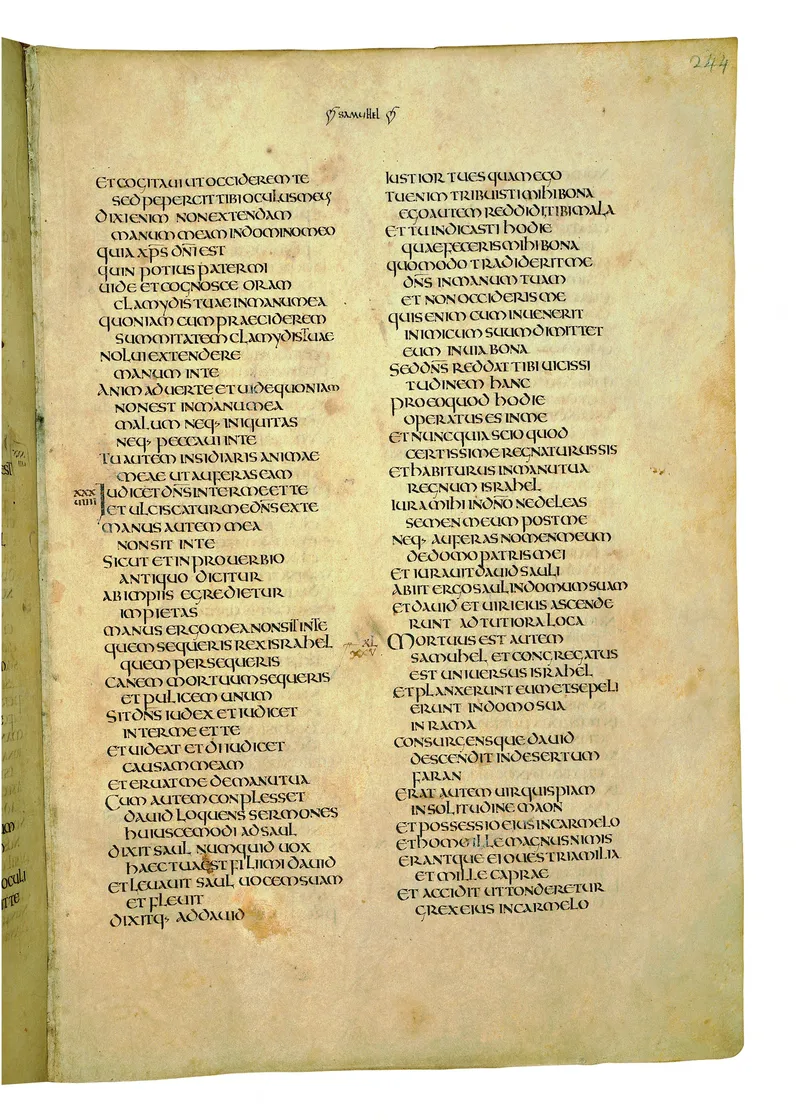 244
SAMUHEL
ET COGITAUI UT OCCIDEREM TE
SED PEPERCIT TIBI OCULUS MEUS
DIXI ENIM NON EXTENDAM
MANUM MEAM IN DOMINO MEO
QUIA XPS DNI EST
QUIN POTIUS PATER MI
UIDE ET COGNOSCE ORAM
CLAMYDIS TUAE IN MANU MEA
QUONIAM CUM PRAECIDEREM
SUMMITATEM CLAMYDIS TUAE
NOLUI EXTENDERE
MANUM IN TE
ANIMADUERTE ET UIDE QUONIAM
NON EST IN MANU MEA
MALUM NEQ· INIQUITAS
NEQ· PECCAUI IN TE
TU AUTEM INSIDIARIS ANIMAE
MEAE UT AUFERAS EAM
XXX
IIIII
IUDICET DNS INTER ME ET TE
ET ULCISCATUR ME DNS EX TE
MANUS AUTEM MEA
NON SIT IN TE
SICUT ET IN PROUERBIO
ANTIQUO DICITUR
AB IMPIIS EGREDIETUR
IMPIETAS
MANUS ERGO MEA NON SIT IN TE
QUEM SEQUERIS REX ISRAHEL
QUEM PERSEQUERIS
CANEM MORTUUM SEQUERIS
ET PULICEM UNUM
SIT DNS IUDEX ET IUDICET
INTER ME ET TE
ET UIDEAT ET DIIUDICET
CAUSAM MEAM
ET ERUAT ME DE MANU TUA
CUM AUTEM CONPLESSET
DAUID LOQUENS SERMONES
HUIUSCEMODI AD SAUL
DIXIT SAUL NUMQUID UOX
HAEC TUA EST FILI MI DAUID
ET LEUAUIT SAUL UOCEM SUAM
ET FLEUIT
DIXITQ· AD DAUID
IUSTIOR TU ES QUAM EGO
TU ENIM TRIBUISTI MIHI BONA
EGO AUTEM REDDIDI TIBI MALA
ET TU INDICASTI HODIE
QUAE FECERIS MIHI BONA
QUOMODO TRADIDERIT ME
DNS IN MANUM TUAM
ET NON OCCIDERIS ME
QUIS ENIM CUM INUENERIT
INIMICUM SUUM DIMITTET
EUM IN UIA BONA
SED DNS REDDAT TIBI UICISSI
TUDINEM HANC
PRO EO QUOD HODIE
OPERATUS ES IN ME
ET NUNC QUIA SCIO QUOD
CERTISSIME REGNATURUS SIS
ET HABITURUS IN MANU TUA
REGNUM ISRAHEL
IURA MIHI IN DNO NE DELEAS
SEMEN MEUM POST ME
NEQ· AUFERAS NOMEN MEUM
DE DOMO PATRIS MEI
ET IURAUIT DAUID SAULI
ABIIT ERGO SAUL IN DOMUM SUAM
ET DAUID ET UIRI EIUS ASCENDE
RUNT AD TUTIORA LOCA
XL
XXV
MORTUUS EST AUTEM
SAMUHEL ET CONGREGATUS
EST UNIUERSUS ISRAHEL
ET PLANXERUNT EUM ET SEPELI
ERUNT IN DOMO SUA
IN RAMA
CONSURGENSQUE DAUID
DESCENDIT IN DESERTUM
FARAN
ERAT AUTEM UIR QUISPIAM
IN SOLITUDINE MAON
ET POSSESSIO EIUS IN CARMELO
ET HOMO ILLE MAGNUS NIMIS
ERANTQUE EI OUES TRIA MILIA
ET MILLE CAPRAE
ET ACCIDIT UT TONDERETUR
GREX EIUS IN CARMELO